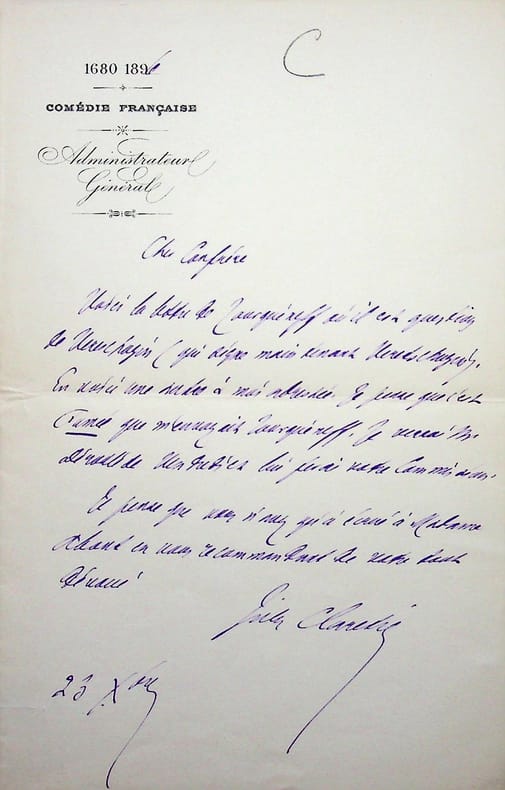 C
1680 1896
COMÉDIE FRANÇAISE
Administrateur
Général
Cher Confrère
Voici la lettre de Tourguéneff où il est question
de Vereschagin (qui signe maintenant
En voici une autre à moi adressée. Je pense que c'est
que Tourguéneff. Je verrai Mr
lui ferai votre Commission.
Je pense que vous n'avez qu'à écrire à Madame
en vous recommandant de votre tout
dévoué
Jules Claretie
23 Xbre